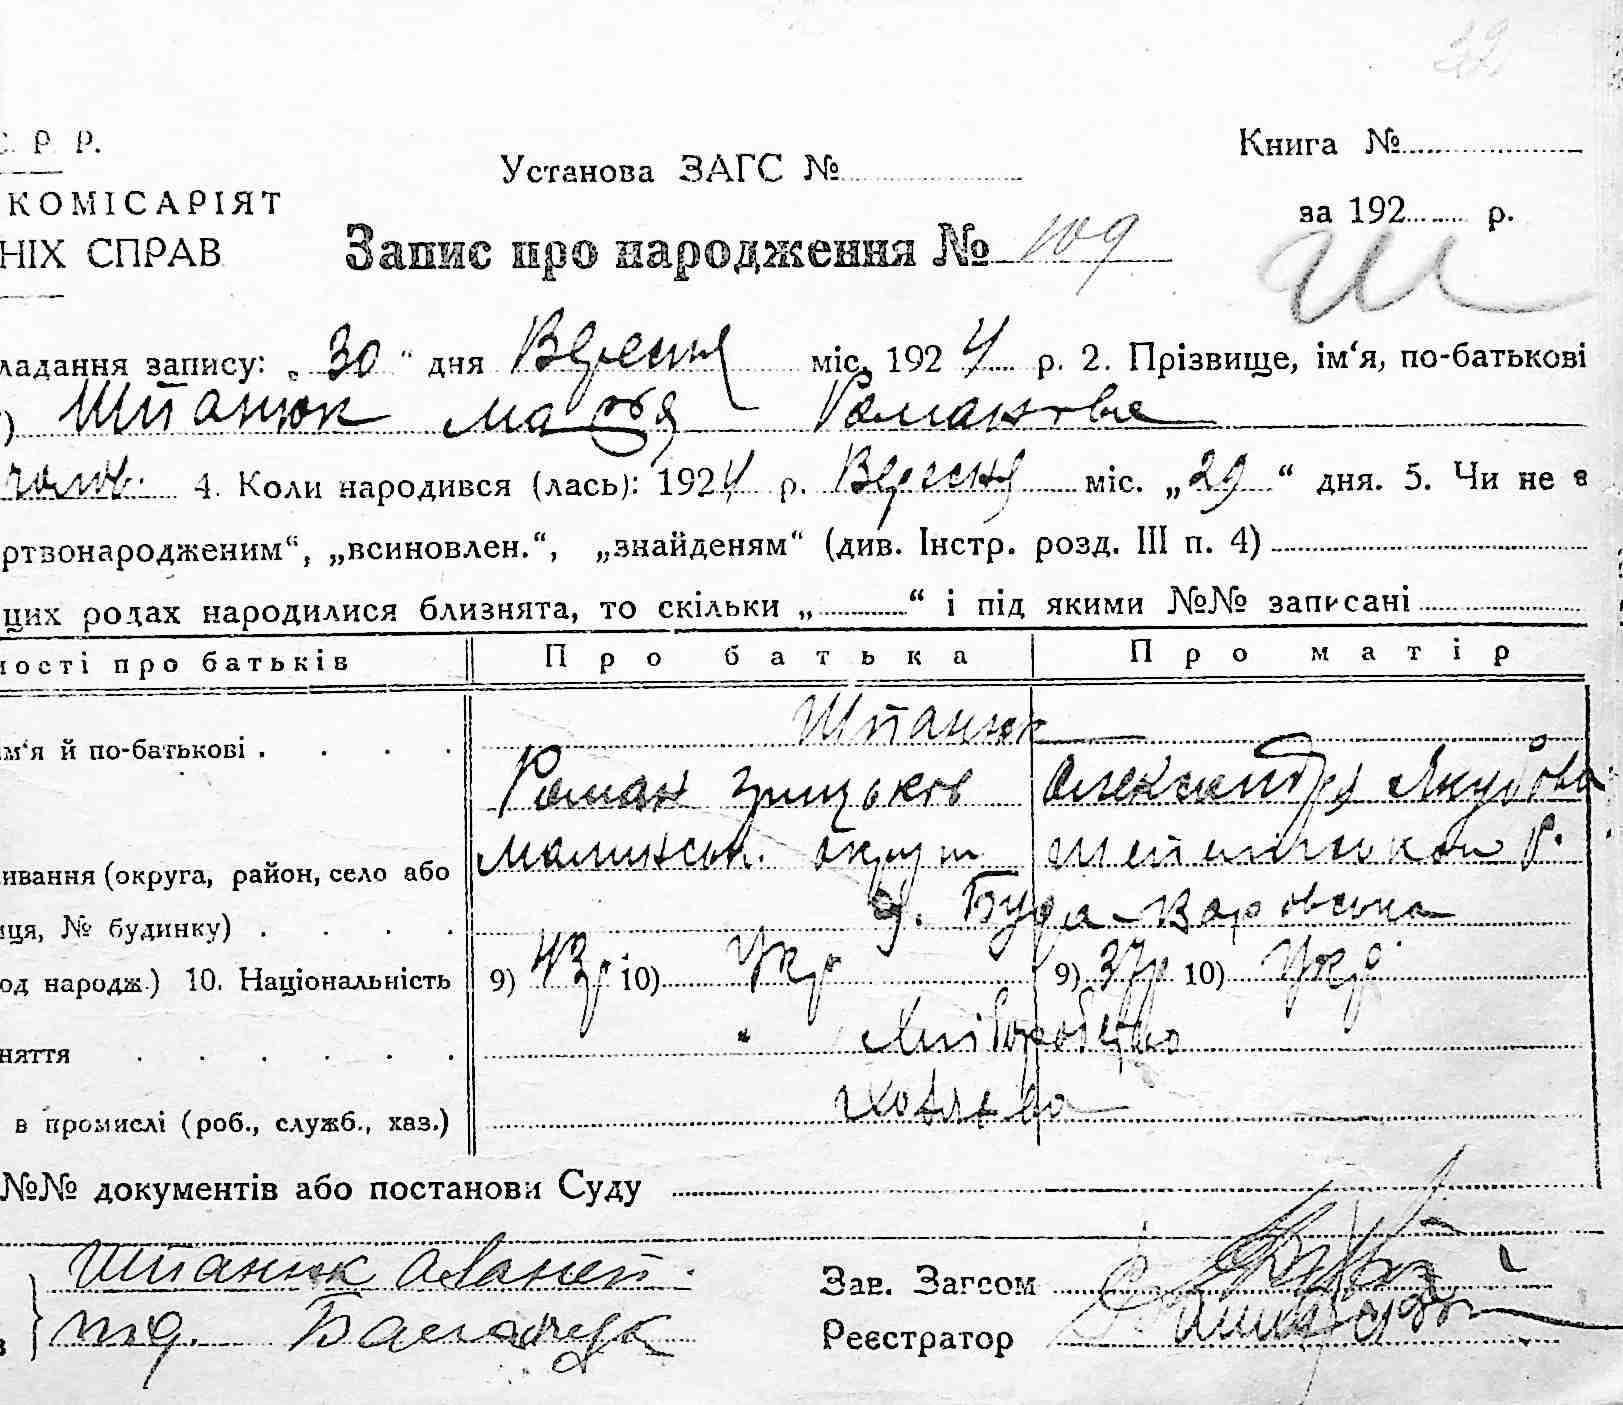 32
С. Р. Р.
Установа ЗАГС № Книга №
КОМІСАРІЯТ за 192 р.
НІХ СПРАВ Запис про народження № 109
Ш
ладання запису: „30“ дня Вересня міс. 1924 р. 2. Прізвище, ім‘я, по-батькові
) Шпанюк Романова
чолов. 4. Коли народився (лась): 1924 р. Вересня міс. „29“ дня. 5. Чи не є
ртвонародженим“, „всиновлен.“, „знайденям“ (див. Інстр. розд. III п. 4)
цих родах народилися близнята, то скільки „ “ і під якими №№ записані
ності про батьків Про батька Про матір
Шпанюк
ім‘я й по-батькові . . . .
Роман Грицьков Олександра Якубова
Малинськ. округи
ивання (округа, район, село або
с. Буда-Варовська
иця, № будинку) . . . .
од народж.) 10. Національність 9) 43р 10) Укр 9) 37р 10) Укр.
няття . . . . . . Хліборобство
в промислі (роб., служб., хаз.)
№№ документів або постанови Суду
Шпанюк
Зав. Загсом
Реєстратор